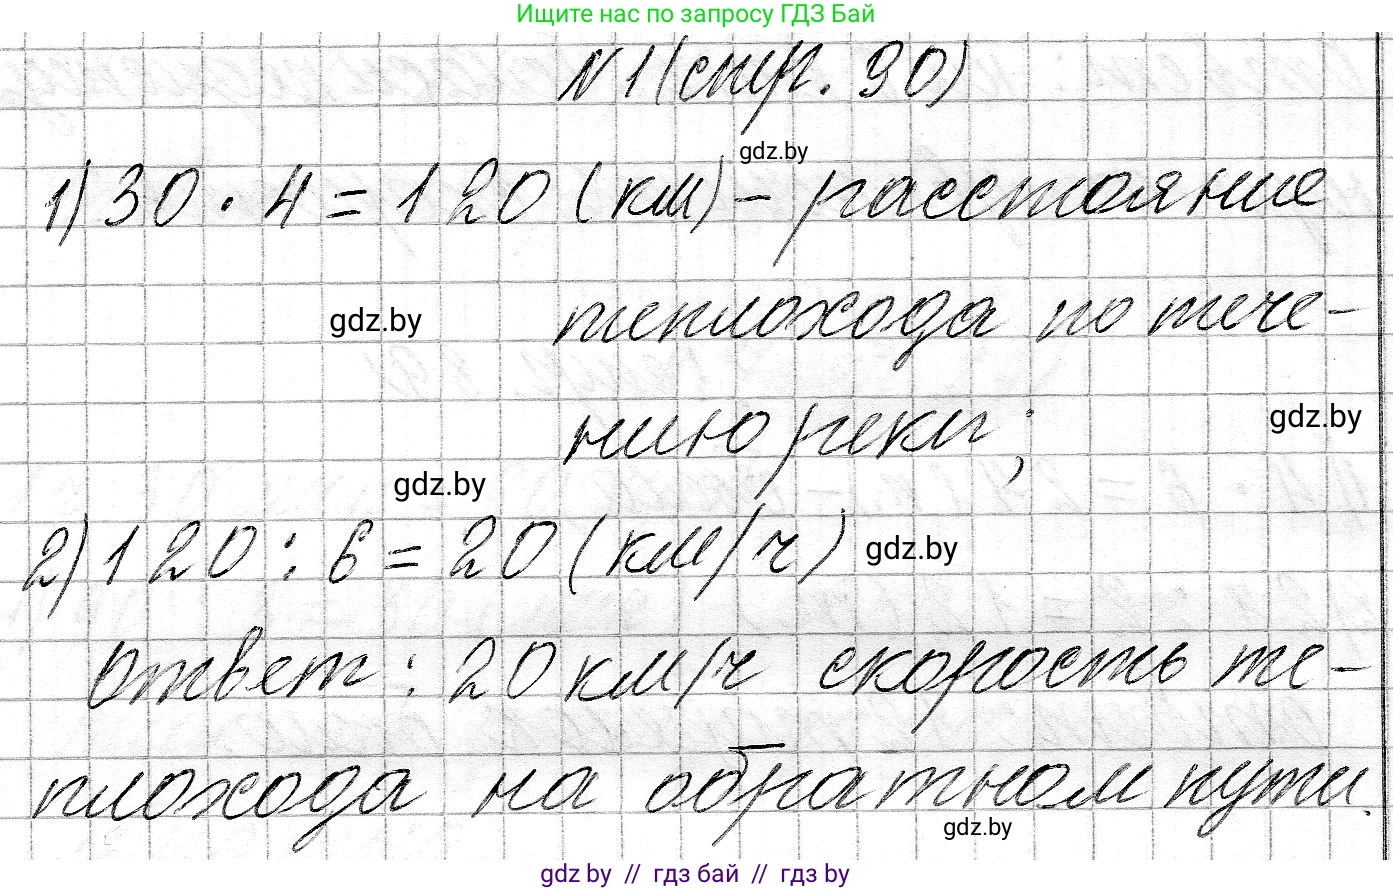 Ищите нас по запросу ГДЗ Бай
N 1 (стр. 90)
gdz.by
1) 30 · 4 = 120 (км) - расстояние
теплохода по тече-
gdz.by
нию реки;
gdz.by
gdz.by
2) 120 : 6 = 20 (км/ч)
gdz.by
Ответ: 20 км/ч скорость те-
плохода на обратном пути.
gdz.by
gdz by // гдз бай // гдз by